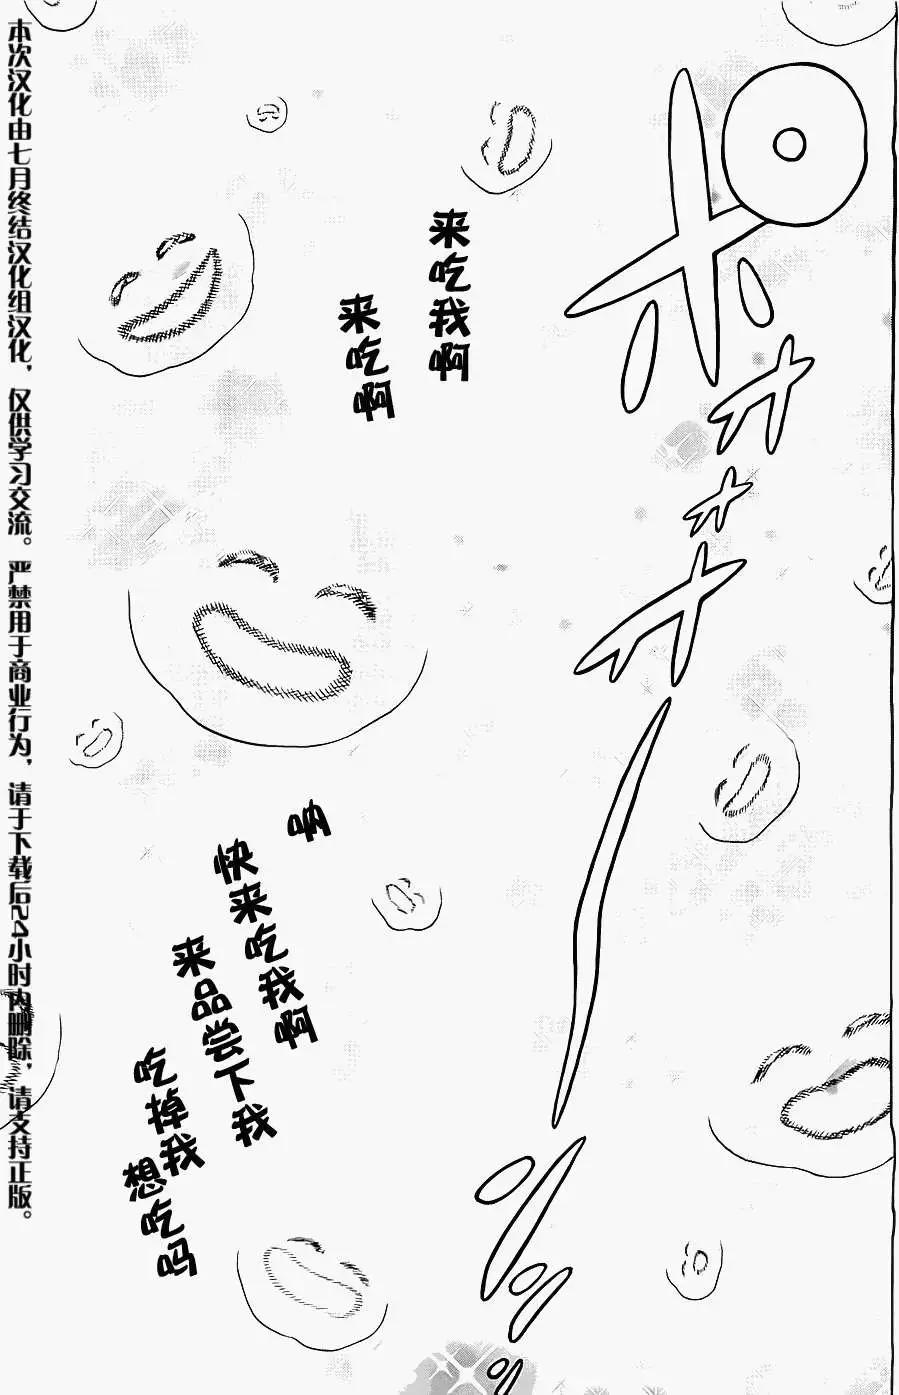 ポオオオ
来吃我啊
来吃啊
呐
快来吃我啊
来品尝下我
吃掉我
想吃吗
本次汉化由七月终结汉化组汉化，仅供学习交流。严禁用于商业行为，请于下载后24小时内删除，请支持正版。